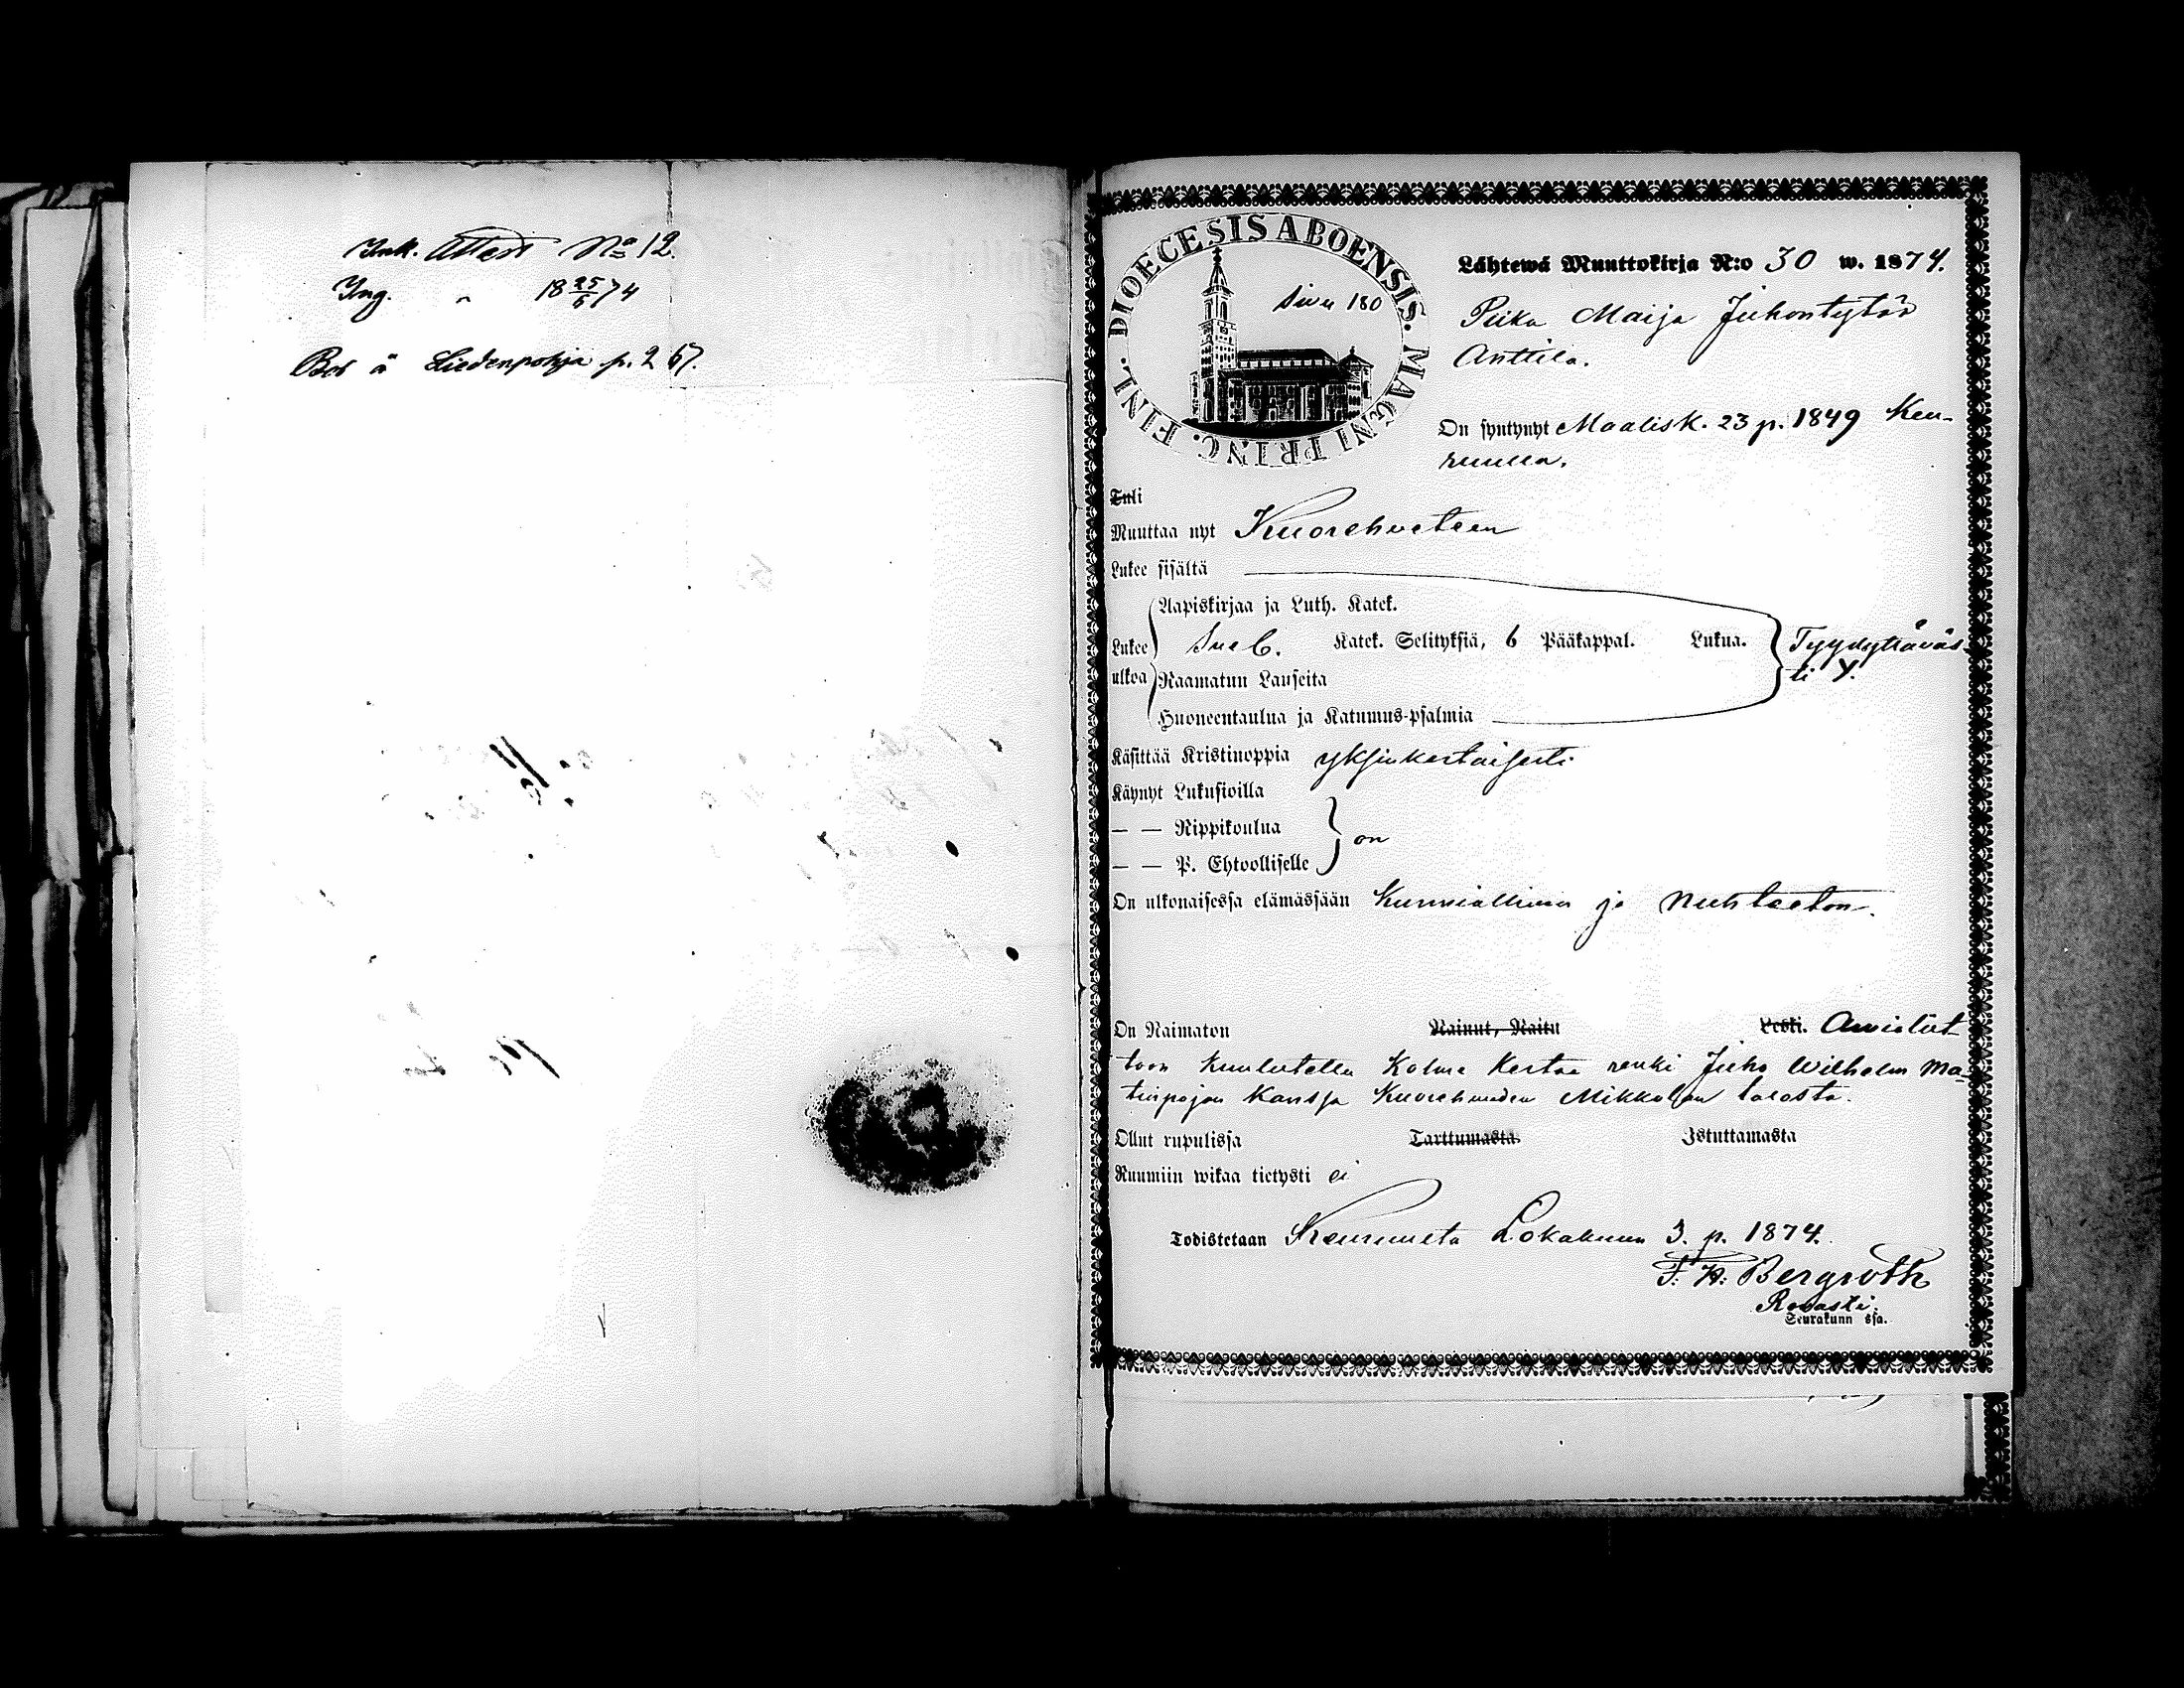 Ink. Attest No 12.
Ing. " 18 25/6 74
Bor å Liedenpohja p. 267.
DIOECESIS ABOENSIS. MAGNI PRINC. FINL.
Sivu 180
Lähtewä Muuttokirja N:o 30 w. 1874.
Piika Maija Juhontytär
Anttila.
On syntynyt Maalisk. 23 p. 1849 Keu-
ruulla.
Tuli
Muuttaa nyt Kuorehveteen
Lukee sisältä
Aapiskirjaa ja Luth. Katek.
Lukee Sueb. Katek. Selityksiä, 6 Pääkappal. Lukua. Tyydyttäväs-
ulkoa Raamatun Lauseita ti
Huoneentaulua ja Katumus-psalmia
Käsittää Kristinoppia yksinkertaisesti
Käynyt Lukusioilla
— — Rippikoulua on
— — P. Ehtoolliselle
On ulkonaisessa elämässään Kunniallinen ja Nuhteeton.
On Naimaton Nainut, Naitu Leski. Avioliit-
toon kuulutettu Kolme Kertaa renki Juho Wilhelm Ma-
tinpojan kanssa Kuorehveden Mikkolan talosta.
Ollut rupulissa Tarttumasta Istuttamasta
Ruumiin wikaa tietysti ei
Todistetaan Keuruulta Lokakuun 3. p. 1874.
F. H. Bergroth
Rovasti.
Seurakunn ssa.